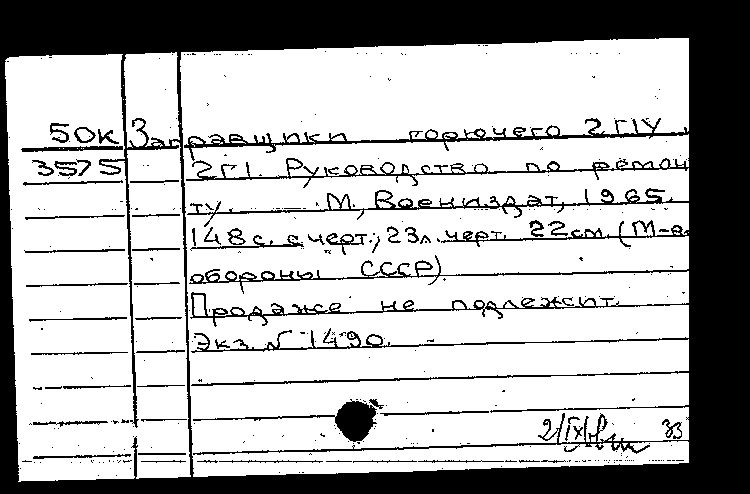 50К Заправщики горючего 2ГIУ,
3575 2ГI. Руководство по ремон
ту. М, Воениздат, 1965.
148 с. с черт.; 23л. черт. 22см. (М-в
обороны СССР)
Продаже не подлежит.
Экз. N 1490.
2/IX 33